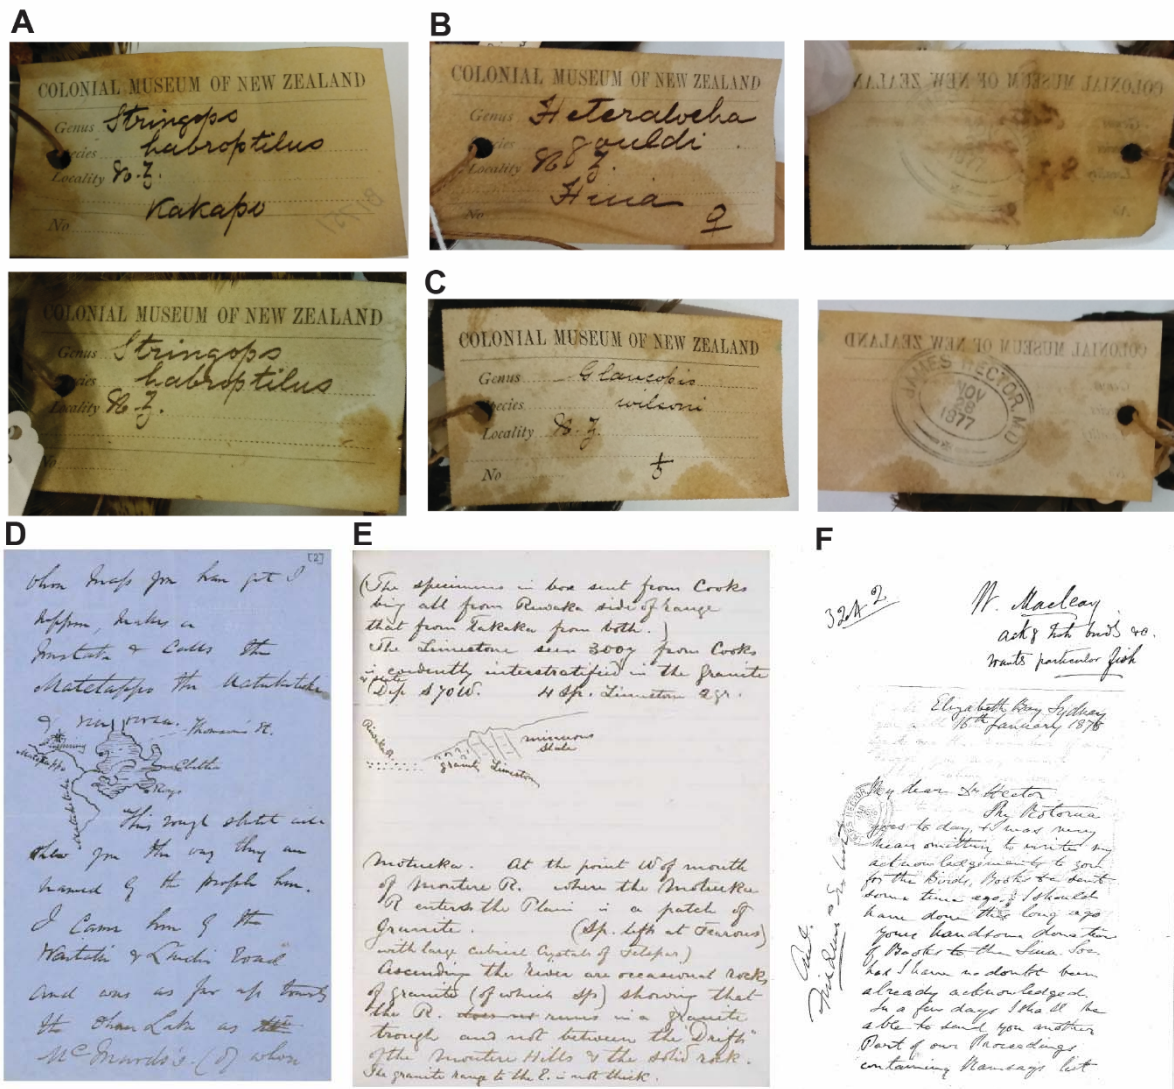 A
COLONIAL MUSEUM OF NEW ZEALAND
Genus Stringops
Species habroptilus
Locality N. Z.
Kakapo
No
COLONIAL MUSEUM OF NEW ZEALAND
Genus Stringops
Species habroptilus
Locality N. Z.
No
B
COLONIAL MUSEUM OF NEW ZEALAND
Genus Heteralocha
Species gouldi
Locality N. Z.
Huia
No ♀
C
COLONIAL MUSEUM OF NEW ZEALAND
Genus Glaucopis
Species wilsoni
Locality N. Z.
No
COLONIAL MUSEUM OF NEW ZEALAND
JAMES HECTOR, M.D
NOV
28
1877
D
[2]
makes a
& calls the
Thomson's Ft.
This rough sketch will
shew you the way they are
named by the people here.
I came here by the
Road
and was as far up towards
the Lake as
(of whom
E
(The specimens in box sent from Cooks
being all from Riwaka side of range
that from Takaka from both.)
The Limestone seen 300y from Cooks
is evidently interstratified in the granite
Dip S70W. 4 Sp. Limestone 2 gr.
Riwaka R.
micaceous
slate
granite Limestone
Motueka. At the point W of mouth
of Moutere R. where the Motueka
R enters the Plain is a patch of
Granite. (Sp. left at Fearons)
with large cubical Crystals of Felspar)
Ascending the river are occasional rocks
of granite (of which Sps) showing that
the R. runs in a granite
trough and not between the "Drift"
of the Moutere Hills & the solid rock.
The granite range to the E. is not thick.
F
W. Macleay
ackg birds &c.
wants particular fish
Elizabeth Bay, Sydney
16th January 1878
My dear Dr Hector
The Rotorua
goes to day, & I was very
near omitting to write my
acknowledgements to you
for the Birds, Books &c sent
some time ago. I should
have done this long ago
your handsome donation
of Books to the Linn. Soc.
has I have no doubt been
already acknowledged.
In a few days I shall be
able to send you another
Part of our Proceedings
containing Ramsays list